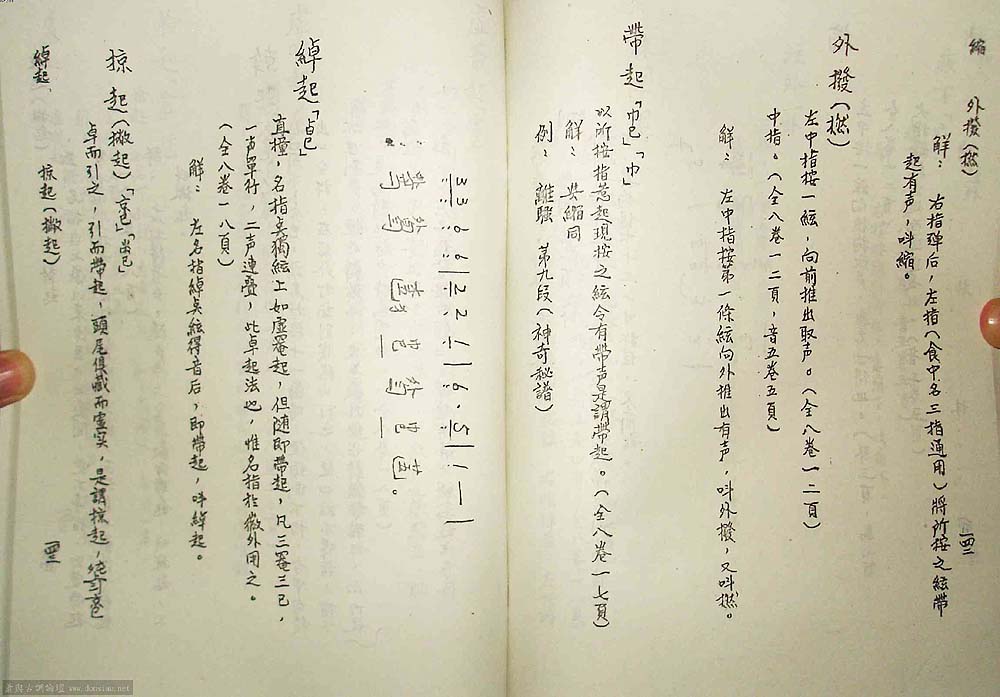 縮
外撥(撚)
解：右指弹后，左指(食中名三指通用)將所按之絃帶
起有声，叫縮。
外撥(撚)
左中指按一絃，向前推出取声。(全八卷一二頁)
中指。(全八卷一二頁，音五卷五頁)
解：左中指按第一條絃向外推出有声，叫外撥，又叫撚。
帶起「巾巳」「巾」
以所按指惹起現按之絃令有帶声是謂帶起。(全八卷一七頁)
解：與縮同
例：離騷 第九段(神奇秘譜)
綽起「卓巳」
直撞，名指点獨絃上如虛罨起，但随即帶起，凡三罨三巳，
一声單行，二声連叠，此卓起法也，惟名指於徽外用之。
(全八卷一八頁)
解：左名指綽某絃得音后，即帶起，叫綽起。
掠起(撇起)「京巳」
卓而引之，引而帶起，頭尾俱藏而虛实，是謂掠起，
綽起、掠起(撇起)